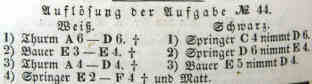 Auflösung der Aufgabe № 44.
Weiß. Schwarz.
1) Thurm A 6 — D 6. † 1) Springer C 4 nimmt D 6.
2) Bauer E 3 — E 4. † 2) Springer D 6 nimmt E 4.
3) Thurm A 4 — D 4. † 3) Bauer E 5 nimmt D 4.
4) Springer E 2 — F 4 † und Matt.